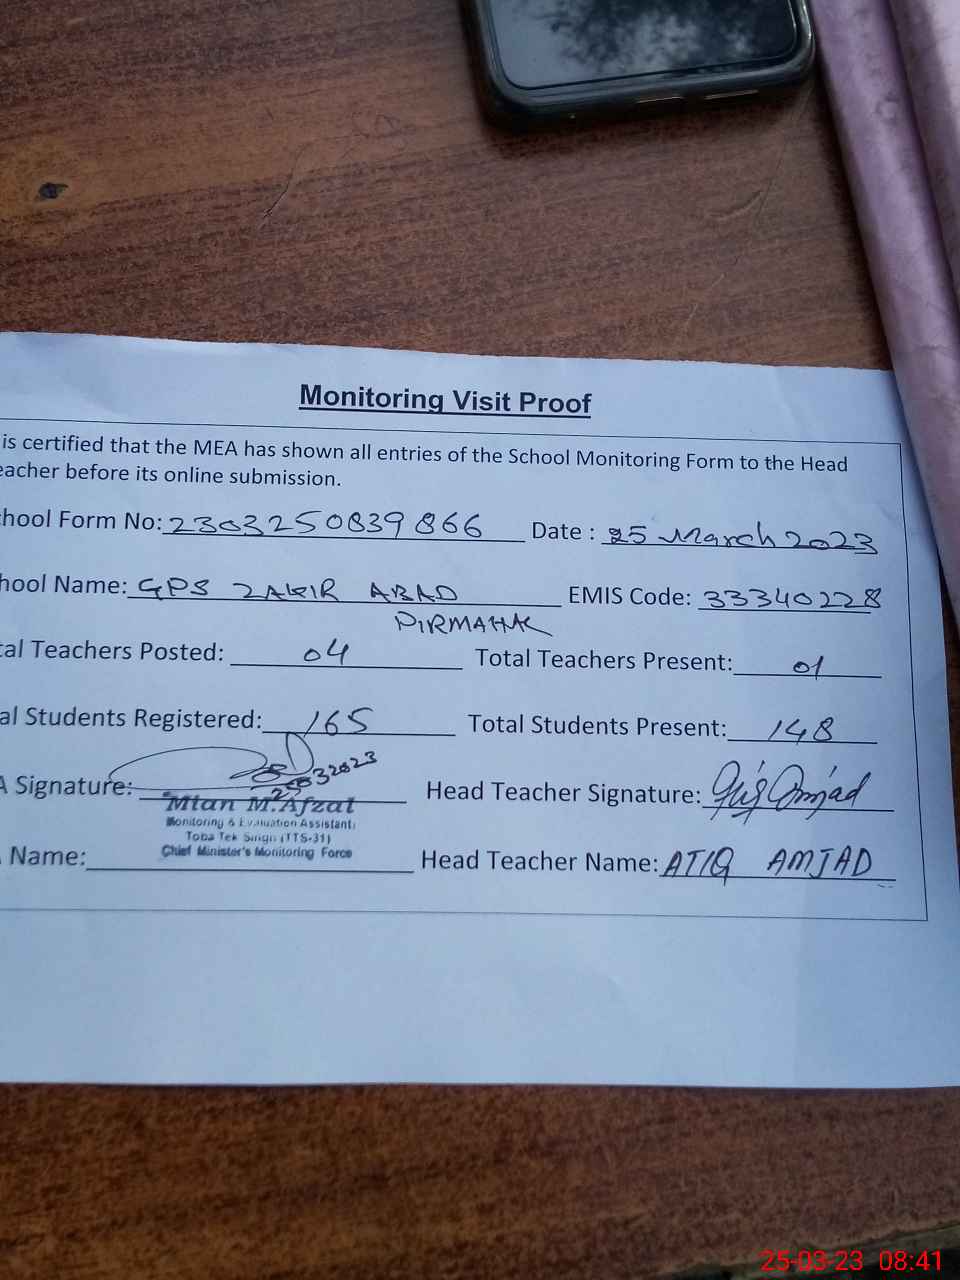 Monitoring Visit Proof
is certified that the MEA has shown all entries of the School Monitoring Form to the Head
eacher before its online submission.
hool Form No: 2303250839866 Date : 25 March 2023
hool Name: GPS ZAKIR ABAD EMIS Code: 33340228
PIRMAHAL
al Teachers Posted: 04 Total Teachers Present: 01
al Students Registered: 165 Total Students Present: 148
A Signature: 25032023 Head Teacher Signature: Atiq Amjad
Mian M.Afzal
Monitoring & Evaluation Assistant
Toba Tek Singh (TTS-31)
Chief Minister's Monitoring Force
Name: Head Teacher Name: ATIQ AMJAD
25-03-23 08:41